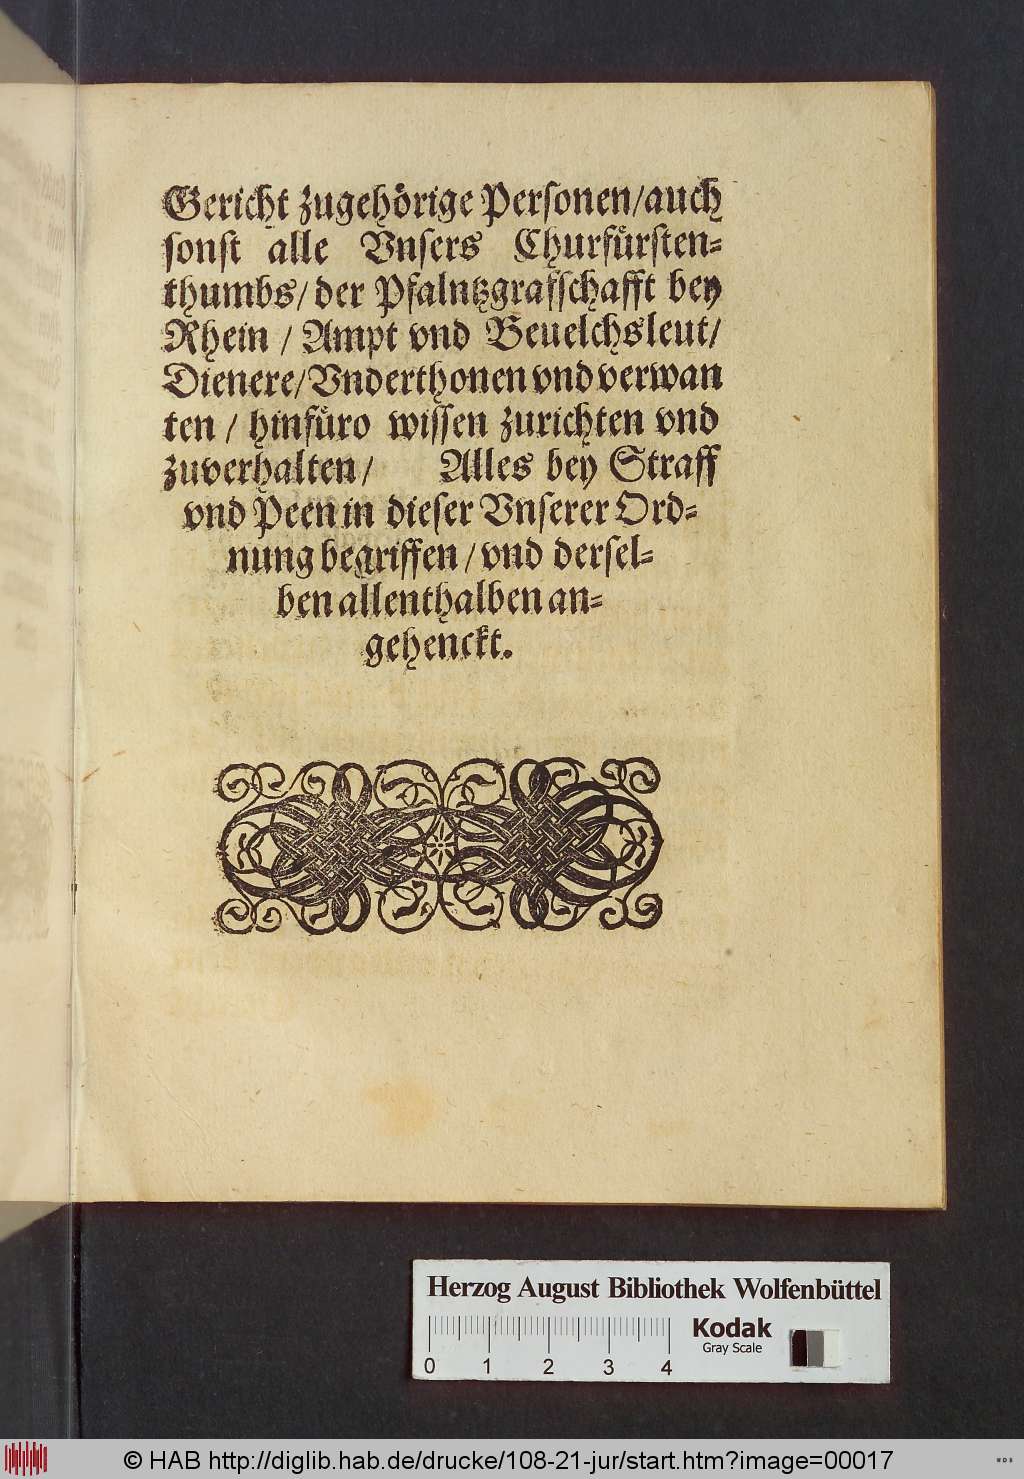 Gericht zugehörige Personen/auch
sonst alle Vnsers Churfürsten=
thumbs/ der Pfalntzgrafschafft bey
Rhein / Ampt vnd Beuelchsleut/
Dienere/Vnderthonen vnd verwan
ten / hinfüro wissen zurichten vnd
zuverhalten/ Alles bey Straff
vnd Peen in dieser Vnserer Ord=
nung begriffen / vnd dersel=
ben allenthalben an=
gehenckt.
Herzog August Bibliothek Wolfenbüttel
Kodak
Gray Scale
0 1 2 3 4
© HAB http://diglib.hab.de/drucke/108-21-jur/start.htm?image=00017